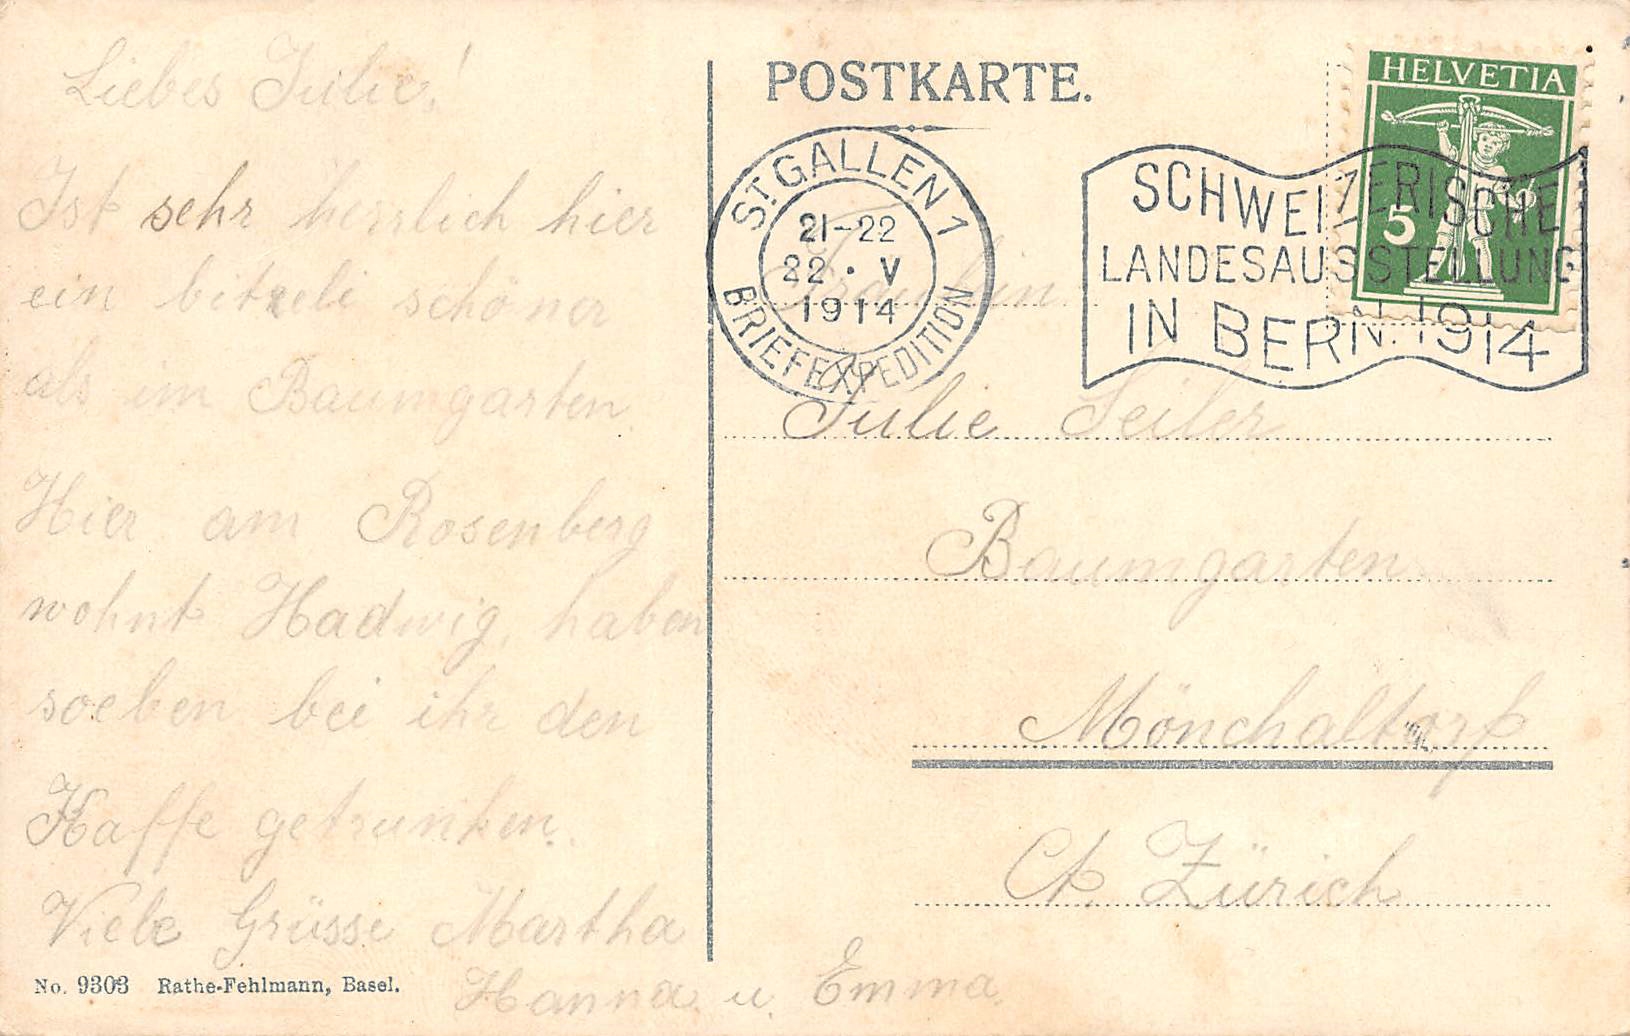 Liebes Julie!
Ist sehr herrlich hier
ein bitzeli schöner
als im Baumgarten.
Hier am Rosenberg
wohnt Hadwig, haben
soeben bei ihr den
Kaffe getrunken.
Viele Grüsse Martha
Hanna u. Emma.
No. 9303 Rathe-Fehlmann, Basel.
POSTKARTE.
HELVETIA
5
ST. GALLEN 1
21-22
22 · V
1914
BRIEFEXPEDITION
SCHWEIZERISCHE
LANDESAUSSTELLUNG
IN BERN. 1914
Fräulein
Julie Seiler
Baumgarten
Mönchaltorf
Ct. Zürich